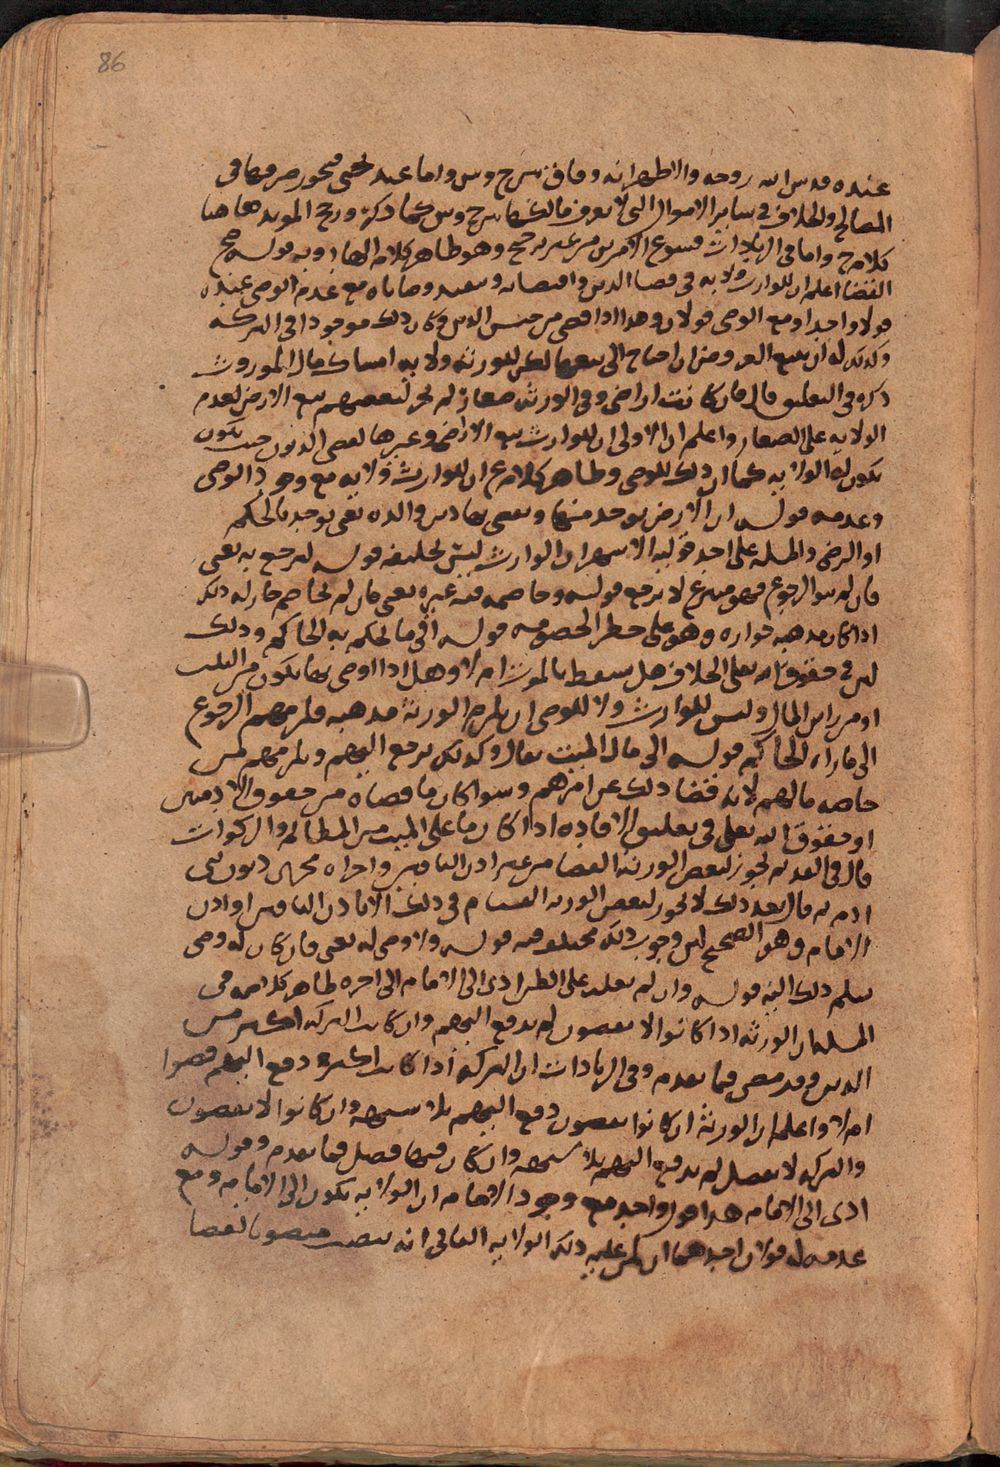 86
عنده قدس الله روحه والظهرانه وفاق بين ح وس واما عند فيجوز صرفها في
المصالح والخلاف في ساير الاموال التي لا يعرف مالكها بين ح وس كما ذكره ورجح المويد هاهنا
كلام ح واما في الزيادات فسوغ الامرين من غير ترجيح وهو ظاهر كلامه قوله صح
القضا اعلم ان للوارث ولايه في قضا الدين واقتضائه وتنفيذ وصاياه مع عدم الوصي عنده
قولا واحدا ومع الوصي قولان وهذا اذا قضى من جنس الدين وكان ذلك موجودا في التركه
وكذلك له ان يبيع العروض ان احتاج الى بيعها لكن للورثه ولايه امساك مال الموروث
ذكره في التعليق قال فان كانت اراضي وفي الورثه صغار لم يجز لبعضهم بيع الارض لعدم
الولايه على الصغار واعلم ان الاولى ان للوارث بيع الاراضي وغيرها لقضى الديون حيث تكون
تكون له الولايه كما ان ذلك للوصي وظاهر كلام ع ان للوارث ولايه مع وجود الوصي
وعدمه قوله ان الارض يوخذ منها ويقضى بها دين والده يعني يوخذ بالحكم
او الرضى والمسله على احد قولي الاستمرار ان الوارث ليس بخليفه قوله لم يرجع به يعني
فان له الرجوع فهو متبرع لا يرجع قوله وخاصمه فيه غيره يعني فان لم يخاصم جاز له ذلك
اذا كان مذهبه جوازه وهو على خطر الخصومه قوله الى ما يحكم به الحاكم وذلك
في حقوق الله تعالى الخلاف هل يسقط بالموت ام لا وهل اذا اوصى بها يكون من الثلث
او من راس المال وليس للوارث ولا للوصي ان يلزم الورثه مذهبه فلزمهم الرجوع
الى ما راه الحاكم قوله الى مال الميت يقال وكذلك يرجع اليهم ويلزمهم لمن
خاصه مالهم لانه قضا ذلك عن امرهم وسوا كان ما قضاه من حقوق الادميين
او حقوق الله تعالى في تعليق الافاده اذا كان ما على الميت من المظالم والزكوات
قال في لا يجوز لبعض الورثه القضا من غير اذن الباقين واجراه مجرى ديون بني
ادم ثم قال بعد ذلك لا يجوز لبعض الورثه القيام في ذلك الا باذن الباقين او اذن
الامام وهو الصحيح لان وجوب ذلك مختلف فيه قوله ولا وصي له يعني فان كان له وصي
سلم ذلك اليه قوله وان لم على الظن ادى الى الامام الى اخره ظاهر كلامه في
المسله ان الورثه اذا كانوا لا يقضون لم يدفع اليهم وان كانت التركه اكثر من
الدين وقد مضى فيما تقدم وفي الزيادات ان التركه اذا كانت اكثر دفع اليهم قضوا
ام لا واعلم ان الورثه ان كانوا يقضون دفع اليهم بلا شبهه وان كانوا لا يقضون
والتركه لا تفضل لم يدفع اليهم بلا شبهه وان كان فيها فضل فما تقدم وقوله
ادى الى الامام هذا قول واحد مع وجود الامام ان الولايه تكون الى الامام ومع
عدمه له قولان احدهما ان كمن عليه ذلك الولايه الثاني انه ينصب منصوبا لقضا